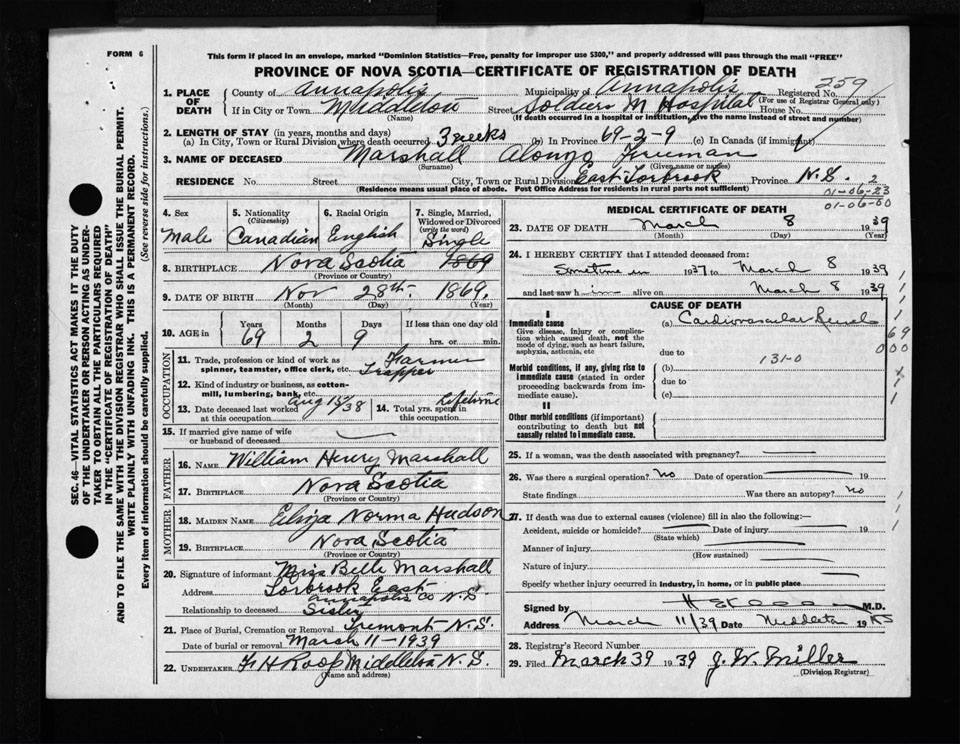 FORM 6
This form if placed in an envelope, marked "Dominion Statistics—Free, penalty for improper use $300," and properly addressed will pass through the mail "FREE"
PROVINCE OF NOVA SCOTIA—CERTIFICATE OF REGISTRATION OF DEATH
259
1. PLACE OF DEATH
County of Annapolis Municipality of Annapolis Registered No.
(For use of Registrar General only)
If in City or Town Middleton Street Soldiers M Hospital House No.
(Name) (If death occurred in a hospital or institution, give the name instead of street and number)
2. LENGTH OF STAY (in years, months and days)
(a) In City, Town or Rural Division where death occurred 3 weeks (b) In Province 69-2-9 (c) In Canada (if immigrant)
3. NAME OF DECEASED Marshall Alonzo Freeman
(Surname) (Given name or names)
RESIDENCE No. Street City, Town or Rural Division East Torbrook Province N.S. 2
(Residence means usual place of abode. Post Office Address for residents in rural parts not sufficient)
01-06-23
01-06-00
4. Sex Male
5. Nationality (Citizenship) Canadian
6. Racial Origin English
7. Single, Married, Widowed or Divorced (write the word) Single
8. BIRTHPLACE Nova Scotia 1869
(Province or Country)
9. DATE OF BIRTH Nov 28th 1869
(Month) (Day) (Year)
10. AGE in Years Months Days If less than one day old
69 2 9 hrs. or min.
OCCUPATION
11. Trade, profession or kind of work as spinner, teamster, office clerk, etc. Farmer Trapper
12. Kind of industry or business, as cotton-mill, lumbering, bank, etc.
13. Date deceased last worked at this occupation Aug 15/38
14. Total yrs. spent in this occupation Lifetime
15. If married give name of wife or husband of deceased
FATHER
16. NAME William Henry Marshall
17. BIRTHPLACE Nova Scotia
(Province or Country)
MOTHER
18. MAIDEN NAME Eliza Norma Hudson
19. BIRTHPLACE Nova Scotia
(Province or Country)
20. Signature of informant Miss Belle Marshall
Address Torbrook East
Annapolis Co N.S.
Relationship to deceased Sister
21. Place of Burial, Cremation or Removal Tremont N.S.
Date of burial or removal March 11-1939
22. UNDERTAKER F H Roop Middleton N.S.
(Name and address)
MEDICAL CERTIFICATE OF DEATH
23. DATE OF DEATH March 8 1939
(Month) (Day) (Year)
24. I HEREBY CERTIFY that I attended deceased from:
Sometime in 1937 to March 8 1939
and last saw him alive on March 8 1939
CAUSE OF DEATH
I
Immediate cause
Give disease, injury or complication which caused death, not the mode of dying, such as heart failure, asphyxia, asthenia, etc
(a) Cardiovascular Renal
due to
131-0
Morbid conditions, if any, giving rise to immediate cause (stated in order proceeding backwards from immediate cause).
(b)
due to
(c)
II
Other morbid conditions (if important) contributing to death but not causally related to immediate cause.
25. If a woman, was the death associated with pregnancy?
26. Was there a surgical operation? No Date of operation 19
State findings Was there an autopsy? No
27. If death was due to external causes (violence) fill in also the following:—
Accident, suicide or homicide? Date of injury 19
(State which)
Manner of injury
(How sustained)
Nature of injury
Specify whether injury occurred in industry, in home, or in public place
Signed by M.D.
Address March 11/39 Date Middleton 19 NS
28. Registrar's Record Number
29. Filed March 39 1939 J. W. Miller
(Division Registrar)
SEC. 46—VITAL STATISTICS ACT MAKES IT THE DUTY
OF THE UNDERTAKER OR PERSON ACTING AS UNDER-
TAKER TO OBTAIN ALL THE PARTICULARS REQUIRED
IN THE "CERTIFICATE OF REGISTRATION OF DEATH"
AND TO FILE THE SAME WITH THE DIVISION REGISTRAR WHO SHALL ISSUE THE BURIAL PERMIT.
WRITE PLAINLY WITH UNFADING INK. THIS IS A PERMANENT RECORD.
Every item of information should be carefully supplied. (See reverse side for instructions.)